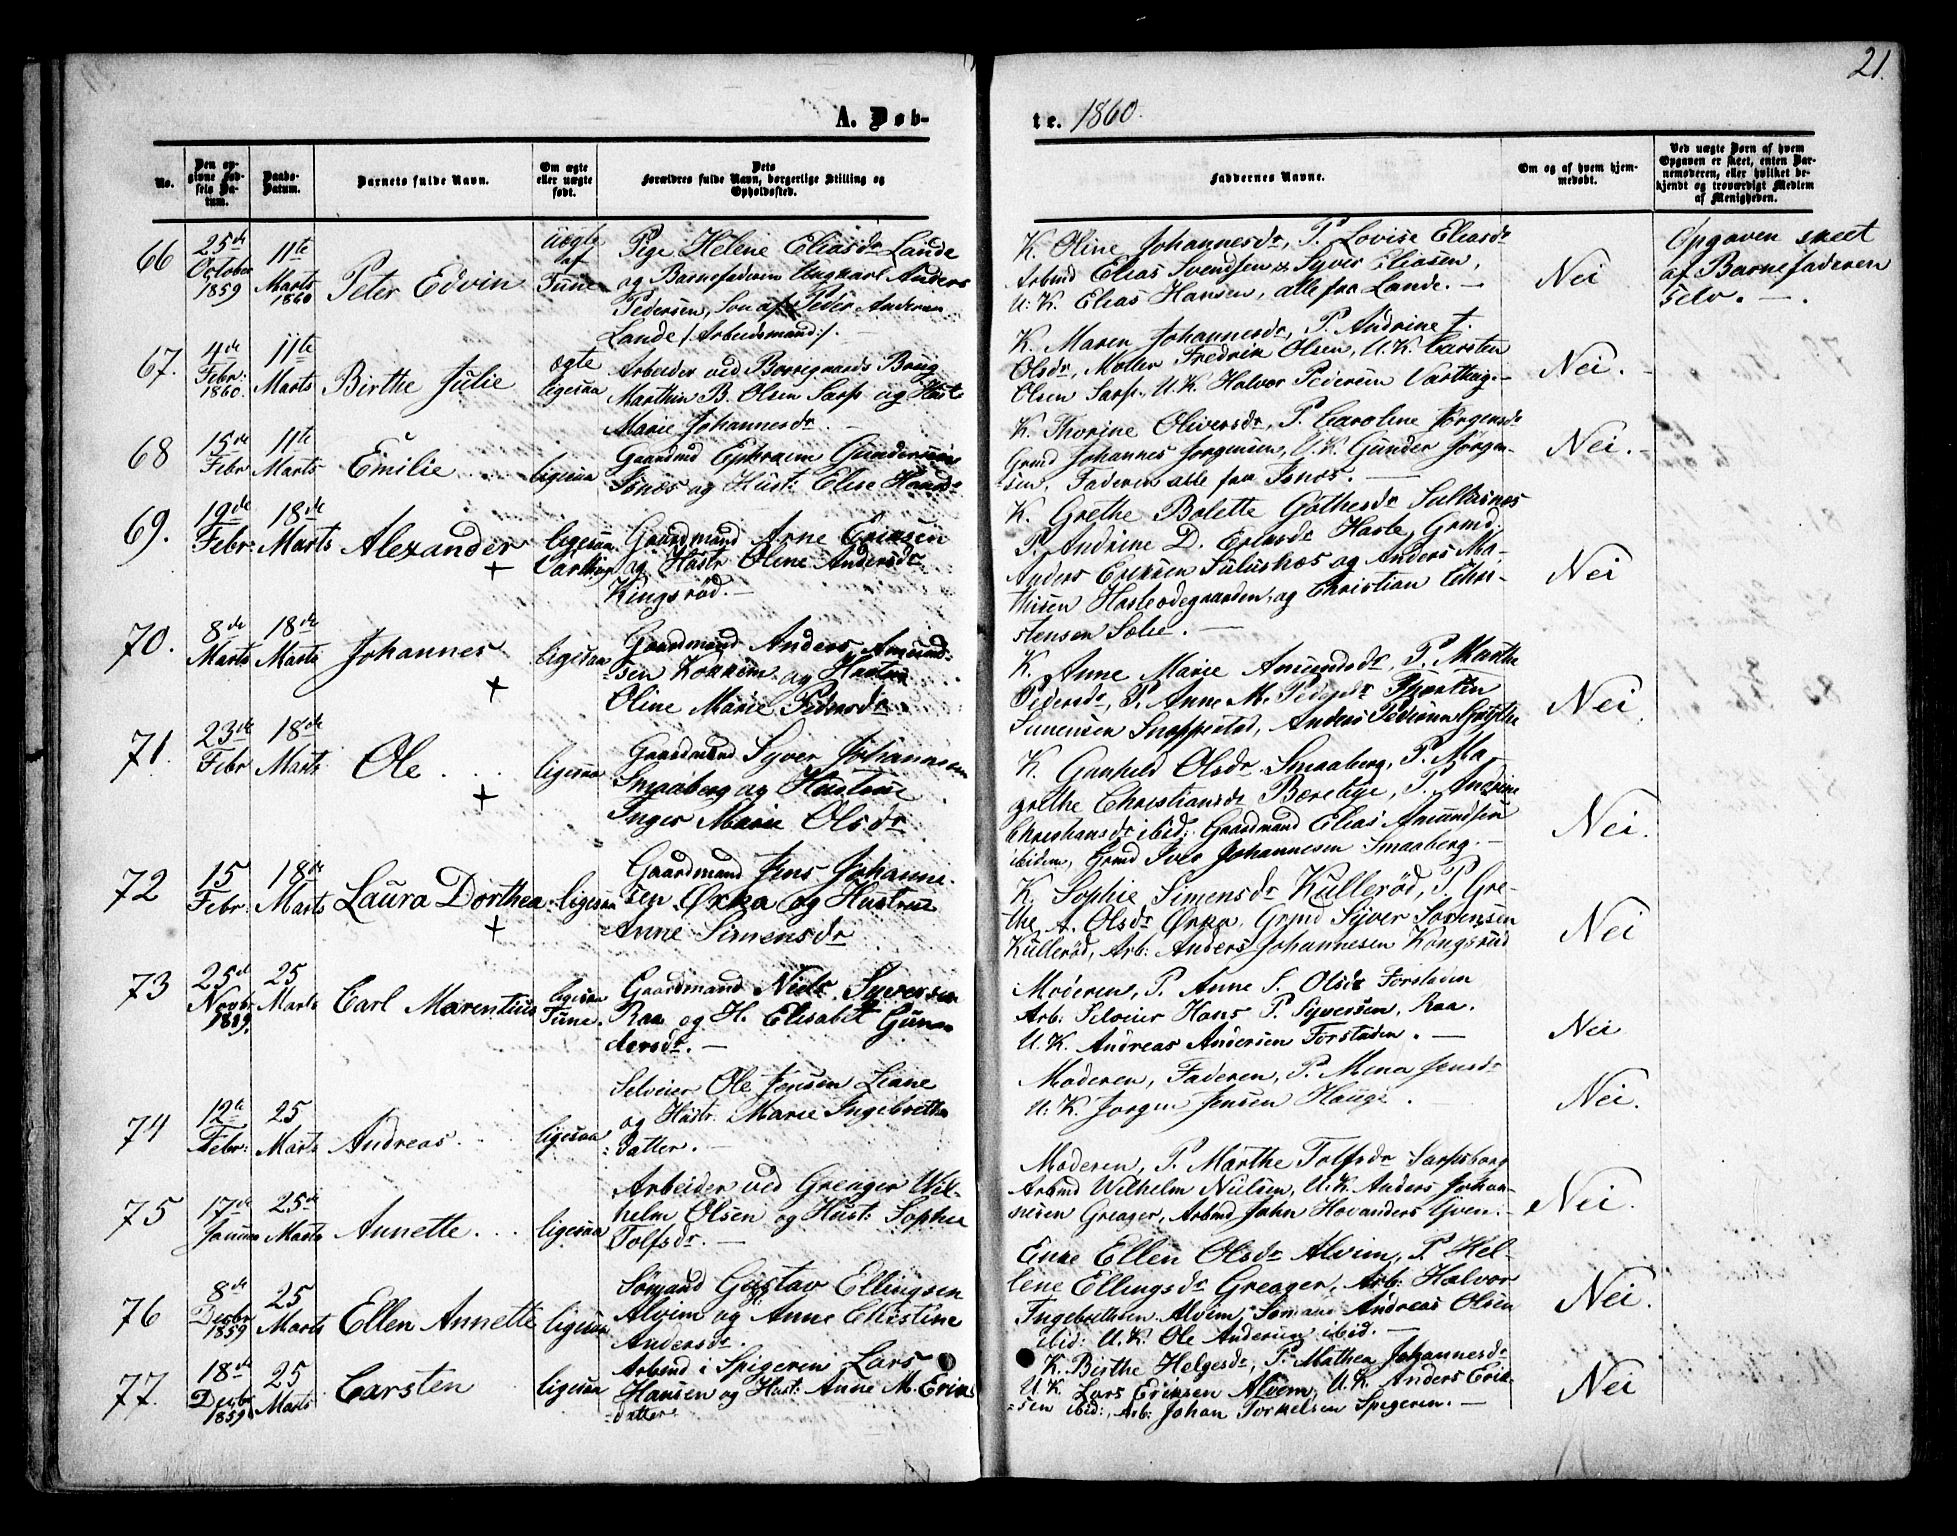 21.
A. Døb-
te. 1860.
No.
Den opgivne Fødsels Datum.
Daabs-Datum.
Barnets fulde Navn.
Om ægte eller uægte født.
Dets Forældres fulde Navn, borgerlige Stilling og Opholdssted.
Faddernes Navne.
Om og af hvem hjemmedøbt.
Ved uægte Børn af hvem Opgaven er skeet, enten Barnemoderen, eller hvilket bekjendt og troværdigt Medlem af Menigheden.
66
25de October 1859
11te Marts 1860
Peter Edvin
Uægte af Tune
Pige Helene Eliasdr Lande
og Barnefaderen Ungkarl Anders
Pedersen, Søn af Peder Andersen
Lande /: Arbeidsmand :/.
K. Oline Johannesdr, P. Lovise Eliasdr
Arbmd Elias Svendsen, Syver Eliasen,
U.K. Elias Hansen, alle fra Lande.
Nei
Opgaven skeet
af Barnefaderen
selv.
67.
4de Febr: 1860.
11te Marts
Birthe Julie
ægte ligesaa
Arbeider ved Borregaards Brug
Marthin B. Olsen Sarp og Hust:
Marie Johannesdr.
K. Maren Johannesdr, P. Andrine
Olsdr, Møller Fredrik Olsen, U.K. Carsten
Olsen Sarp, U.K. Halvor Pedersen Varthug.
Nei.
68
15de Febr
11te Marts
Emilie
ligesaa
Gaardmd Ephraim Gundersen
Isnæs og Hust: Elise
K. Thorine Oliversdr, P. Caroline Jørgensdr
Grmd Johannes Jørgensen, U.K. Gunder Jørgen-
sen, Faderen alle fra Isnæs.
Nei.
69.
19de Febr:
18de Marts
Alexander
ligesaa
Gaardmand Arne Eriksen
og Hustr Oline Andersdr
Kingsrød.
K. Grethe Bolette Gøthesdr
P. Andrine D. Hasle, Grmd:
Anders Eriksen og Anders Ma-
thisen Hasleødegaarden, og Christian Chri-
stensen Solie.
Nei
70.
8de Marts
18de Marts
Johannes
ligesaa
Gaardmand Anders Amund-
sen og Hustru
Oline Marie Pedersdr.
K. Anne Marie Amundsdr, P. Marthe
Pedersdr, P. Anne M. Pedersdr
Simensen Snapperstad, Anders Pedersen
Nei.
71.
23de Febr
18de Marts
Ole
ligesaa
Gaardmand Syver Johannesen
Smaaberg og Hustrue
Inger Marie Olsdr
K. Gunhild Olsdr Smaaberg, P. Ma-
grethe Christiansdr P. Andrine
Christiansdr ibid: Gaardmand Elias Amundsen
ibidem, Grmd Iver Johannesen Smaaberg.
Nei.
72
15 Febr:
18de Marts
Laura Dorthea
ligesaa
Gaardmand Jens Johanne-
sen Ørka og Hustrue
Anne Simensdr
K. Sophie Simensdr Kullerød, P. Gre-
the A. Olsdr Ørka, Grmd Syver Sørensen
Kullerød, Arb: Anders Johannesen Kongsrud
Nei
73
25de Novbr 1859.
25 Marts
Carl Marentius
ligesaa Tune.
Gaardmand Niels Syversen
Raa og H. Elisabet Gun-
dersdr.
Moderen, P. Anne S. Olsdr
Arb: Selveier Hans P. Syversen, Raa.
U.K. Andreas Andersen
Nei
74
12te Febr:
25 Marts
Andreas
ligesaa
Selveier Ole Jensen Liane
og Hustr. Marie Ingebreths
Datter.
Moderen, Faderen, P. Mina Jensdr
U.K. Jørgen Jensen Hauge.
Nei.
75
17de Januar
25de Marts
Annette
ligesaa
Arbeider ved Greager Wil-
helm Olsen og Hust: Sophie
Tolfsdr.
Moderen, P. Marthe Tolfsdr Sarpsborg
Arbmd Wilhelm Nielsen, U.K. Anders Johan-
nesen Greager, Arbmd Jahn
Nei.
76
8de Decbr 1859
25 Marts
Ellen Annette
ligesaa
Sømand Gustav Ellingsen
Alvim og Anne Christine
Andersdr.
Enke Ellen Olsdr Alvim, P. Hel-
lene Ellingsdr Greager, Arb: Halvor
Ingebrethsen Alvim, Sømand Andreas Olsen
ibid: U.K. Ole Andersen ibid.
Nei.
77.
18de Decbr 1859
25 Marts
Carsten
ligesaa
Arbmd i Spigeren Lars
Hansen og Hust: Anne M. Eriks
datter
K. Birthe Helgesdr, P. Mathea Johannesdr
U.K. Lars Eriksen Alvim, U.K. Anders Erik-
sen ibid:, Arb: Johan Torkelsen Spigeren.
Nei